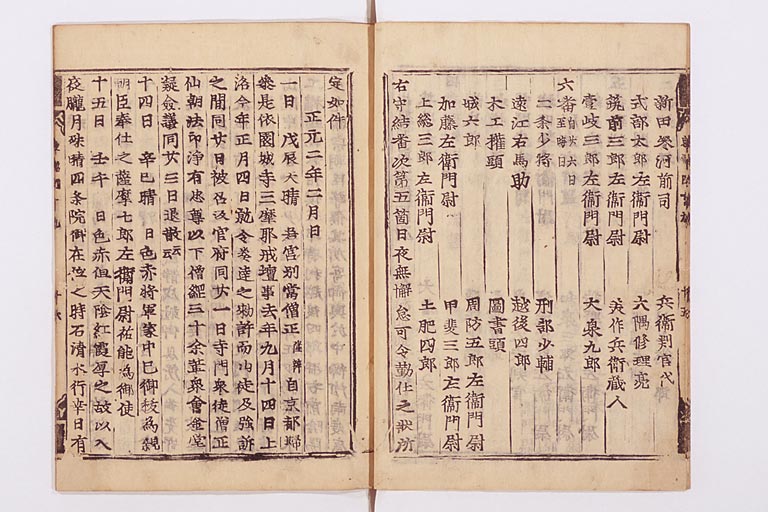 新田参河前司 兵衛判官代
式部太郎左衛門尉 大隅修理亮
筑前三郎左衛門尉 美作兵衛蔵人
壹岐三郎左衛門尉 大泉九郎
六番 自廿六日至晦日
二条少将 刑部少輔
遠江右馬助 越後四郎
木工権頭 圖書頭
城六郎 周防五郎左衛門尉
加藤左衛門尉 甲斐三郎左衛門尉
上総三郎左衛門尉 土肥四郎
右守結番次第五箇日夜無懈怠可令勤仕之状所
定如件
正元二年二月日
一日 戊辰天晴 若宮別當僧正 隆弁 自京都歸
参是依園城寺三摩耶戒壇事去年九月十四日上
洛今年正月四日勅令発達之勅許而山徒及強訴
之間同廿日被召返官府同廿一日寺門衆徒僧正
仙朝法印淨有忠尊以下僧綱三十余輩衆會金堂
凝僉議同廿三日退散云云
十四日 辛巳晴 日色赤將軍家中巳御秡為親
明臣奉仕之薩摩七郎左衛門尉祐能為御使
十五日 壬午 日色赤但天陰紅霞厚之故以入
夜朧月殊晴四条院御在位之時石清水行幸日有